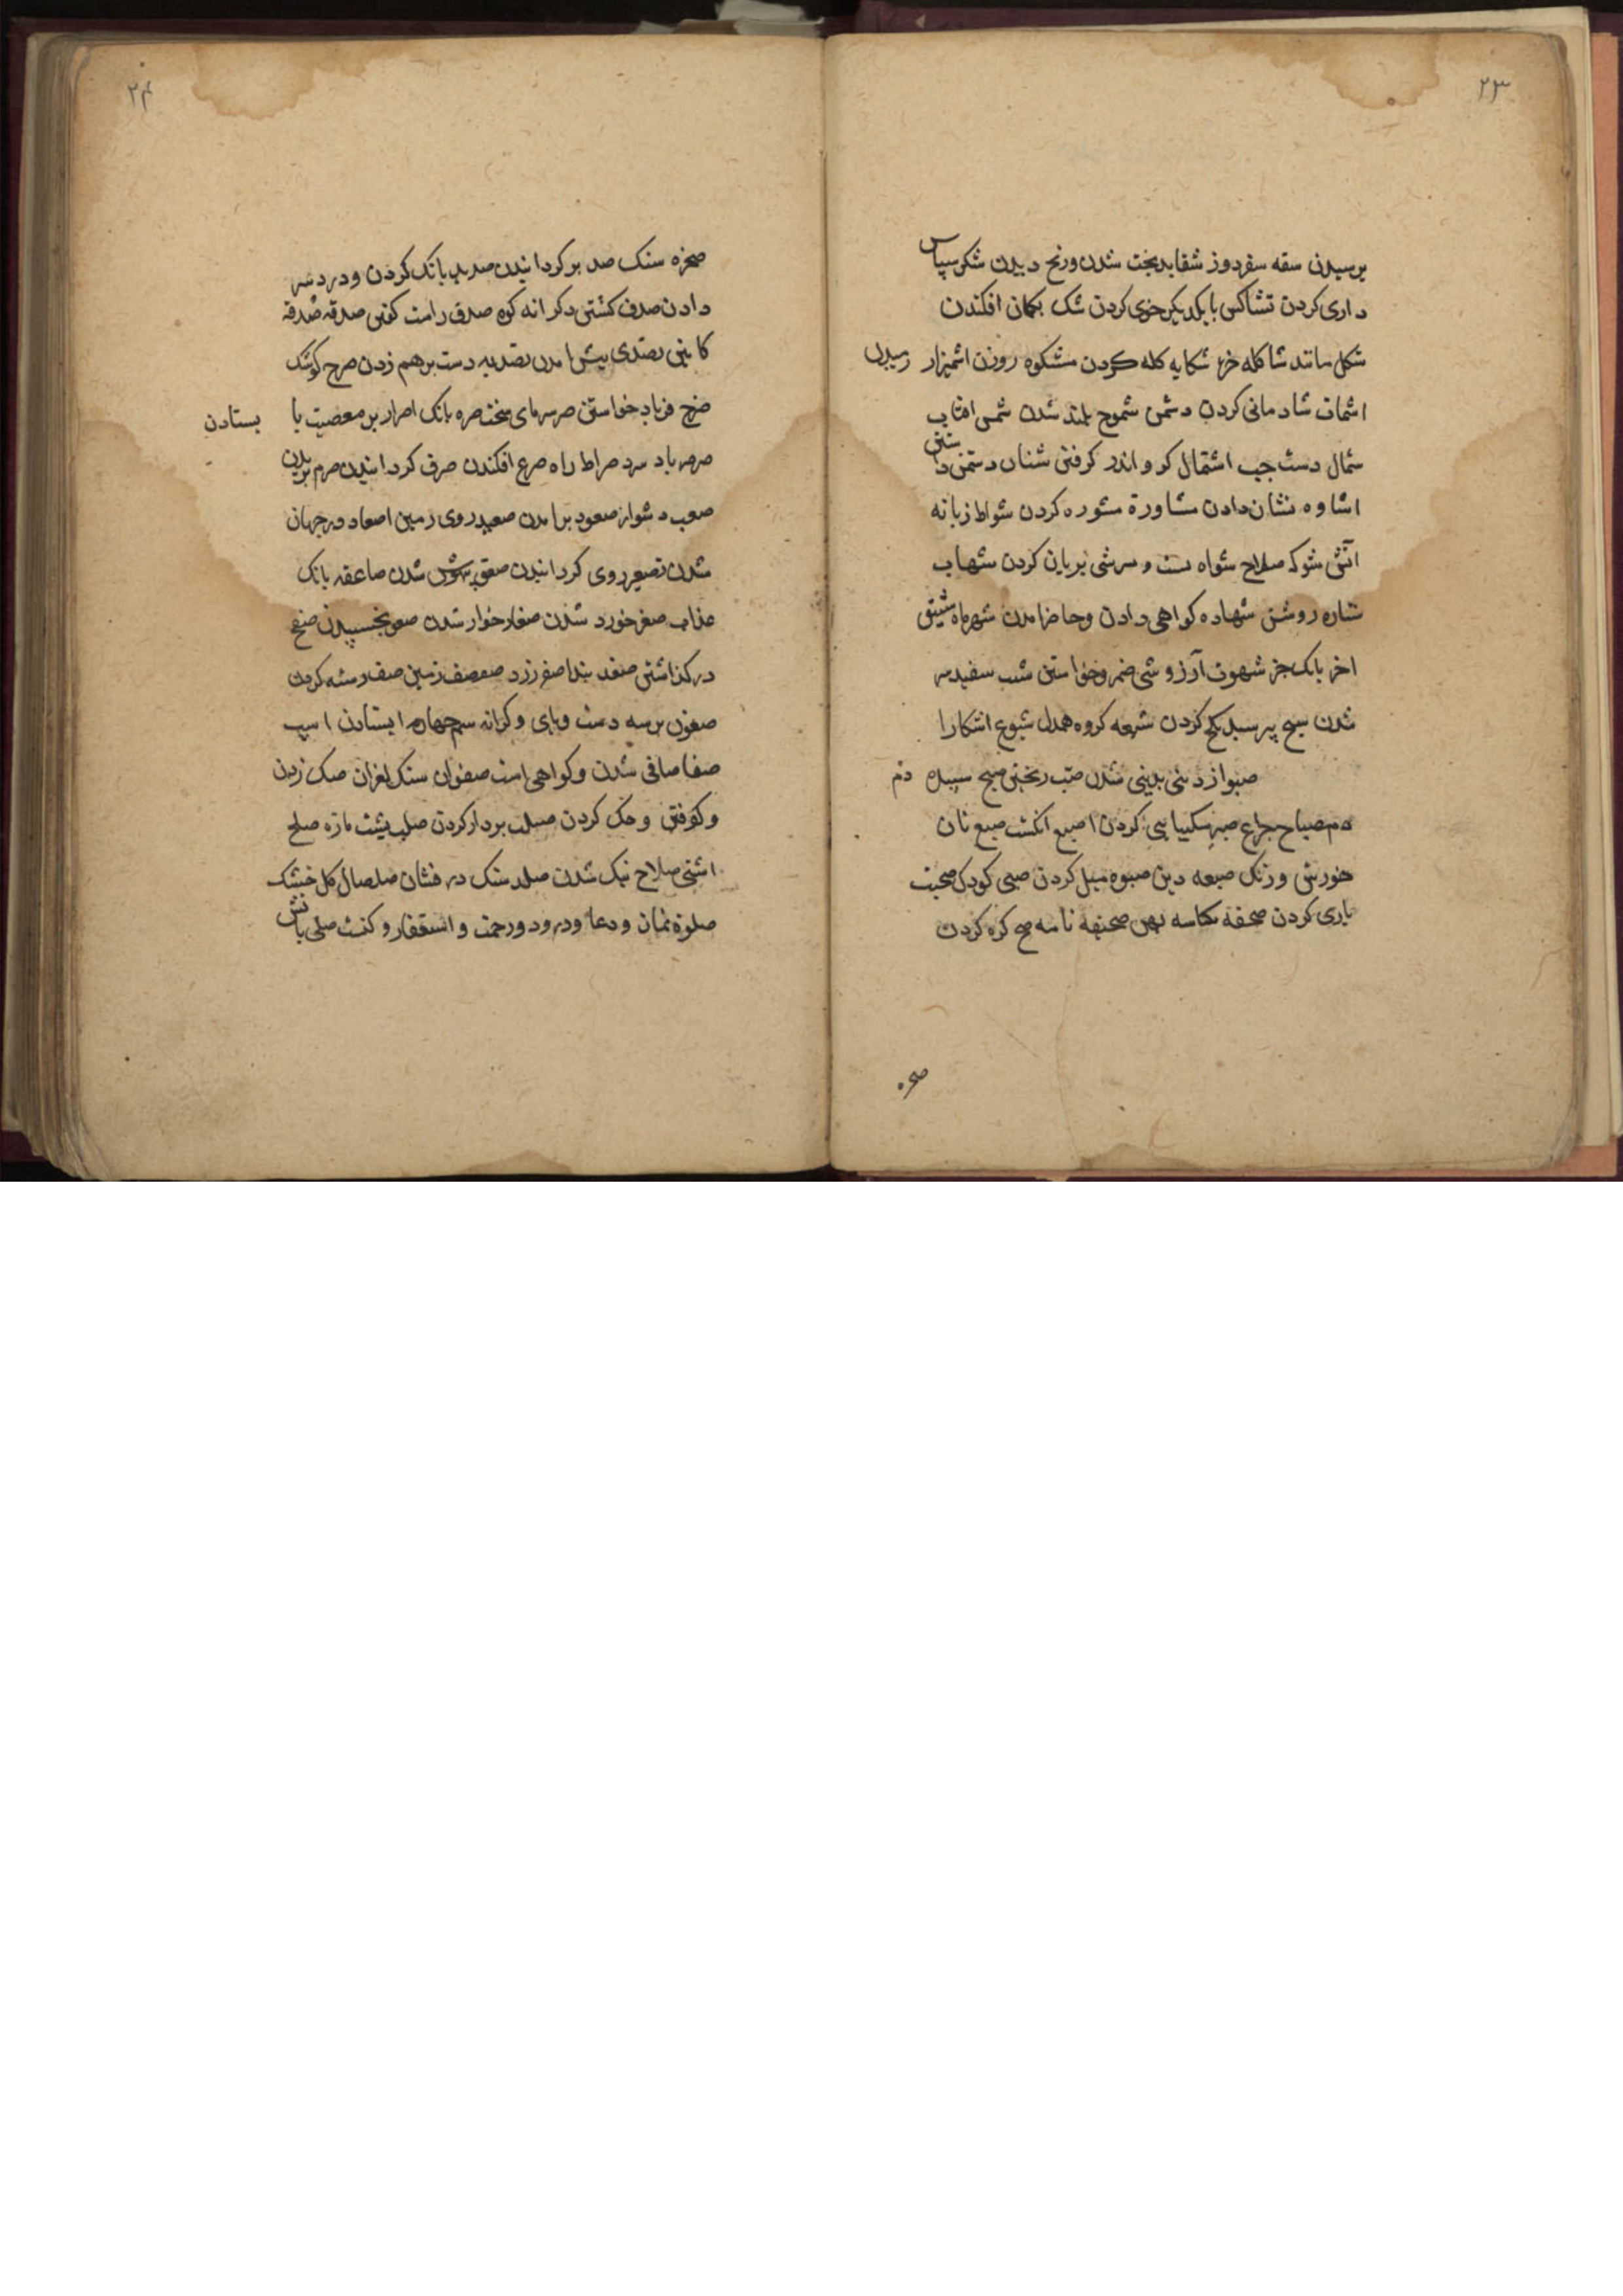 ۲۳
برسیدن سقه سفردوز شقا بدبخت شدن ورنج دیدن شکر سپاس
داری کردن تشاکس با یکدیگر خوی کردن شک بکمان افکندن
شکل مانند شاکله خو شکایه کله کردن مشکوه روزن اشمیزار رمیدن
اشمات شادمانی کردن دشمن شموخ بلند شدن شمس افتاب
شمال دست جپ اشتمال کرد اندر کرفتن شنان دشمن داشتن
اشاره نشان دادن مشاورة مشوره کردن شواظ زبانه
آتش شوکه سلاح شواه شی بریان کردن شهاب
ستاره روشن شهاده کواهی دادن وحاضر امدن شهر ماه شهیق
اخر بانک خر شهوت آرزو شی وخواستن شیب سفید سر
شدن شیخ پیر کردن شیعه کروه همدل شیوع اشکارا
صبو از دینی بدینی شدن صب ریختن صبح سپیده دم
مصباح جراغ صبر شکیبایی کردن اصبع انکشت صبغ نان
خورش و رنک صبغه دین صبوه میل کردن صبی کودک صحبت
یاری کردن صحفه کاسه پهن صحیفه نامه صخ کره کردن
صخره
۲۴
صخره سنک صد بر کردانیدن صدید بانک کردن ودرد سر
دادن صدف کشتن و کرانه کوه صدق راست کفتن صدقه صدقه
کابین تصدی پیش امدن تصدیه دست بر هم زدن صرح کوشک
صرخ فریاد خواستن صر سرمای سخت صره بانک اصرار بر معصیت با بستادن
صرصر باد سرد صراط راه صرع افکندن صرف کردانیدن صرم بریدن
صعب دشوار صعود برامدن صعید روی زمین اصعاد در جهان
شدن تصعیر روی کردانیدن صعق بیهوش شدن صاعقه بانک
عذاب صغر خورد شدن صغار خوار شدن صغو بخسپیدن صفح
در کذاشتن صفد بند اصفر زرد صفصف زمین صف رسته کردن
صفون بر سه دست وپای وکرانه سم چهارم ایستادن اسپ
صفا صافی شدن و کواهی است صفوان سنک لغزان صک زدن
وکوفتن وحک کردن صلب بردار کردن صلب پشت مازه صلح
اشتی صلاح نیک شدن صلد سنک درفشان صلصال کل خشک
صلوة نماز ودعا ودرود ورحمت واستغفار و کنشت صلی باتش